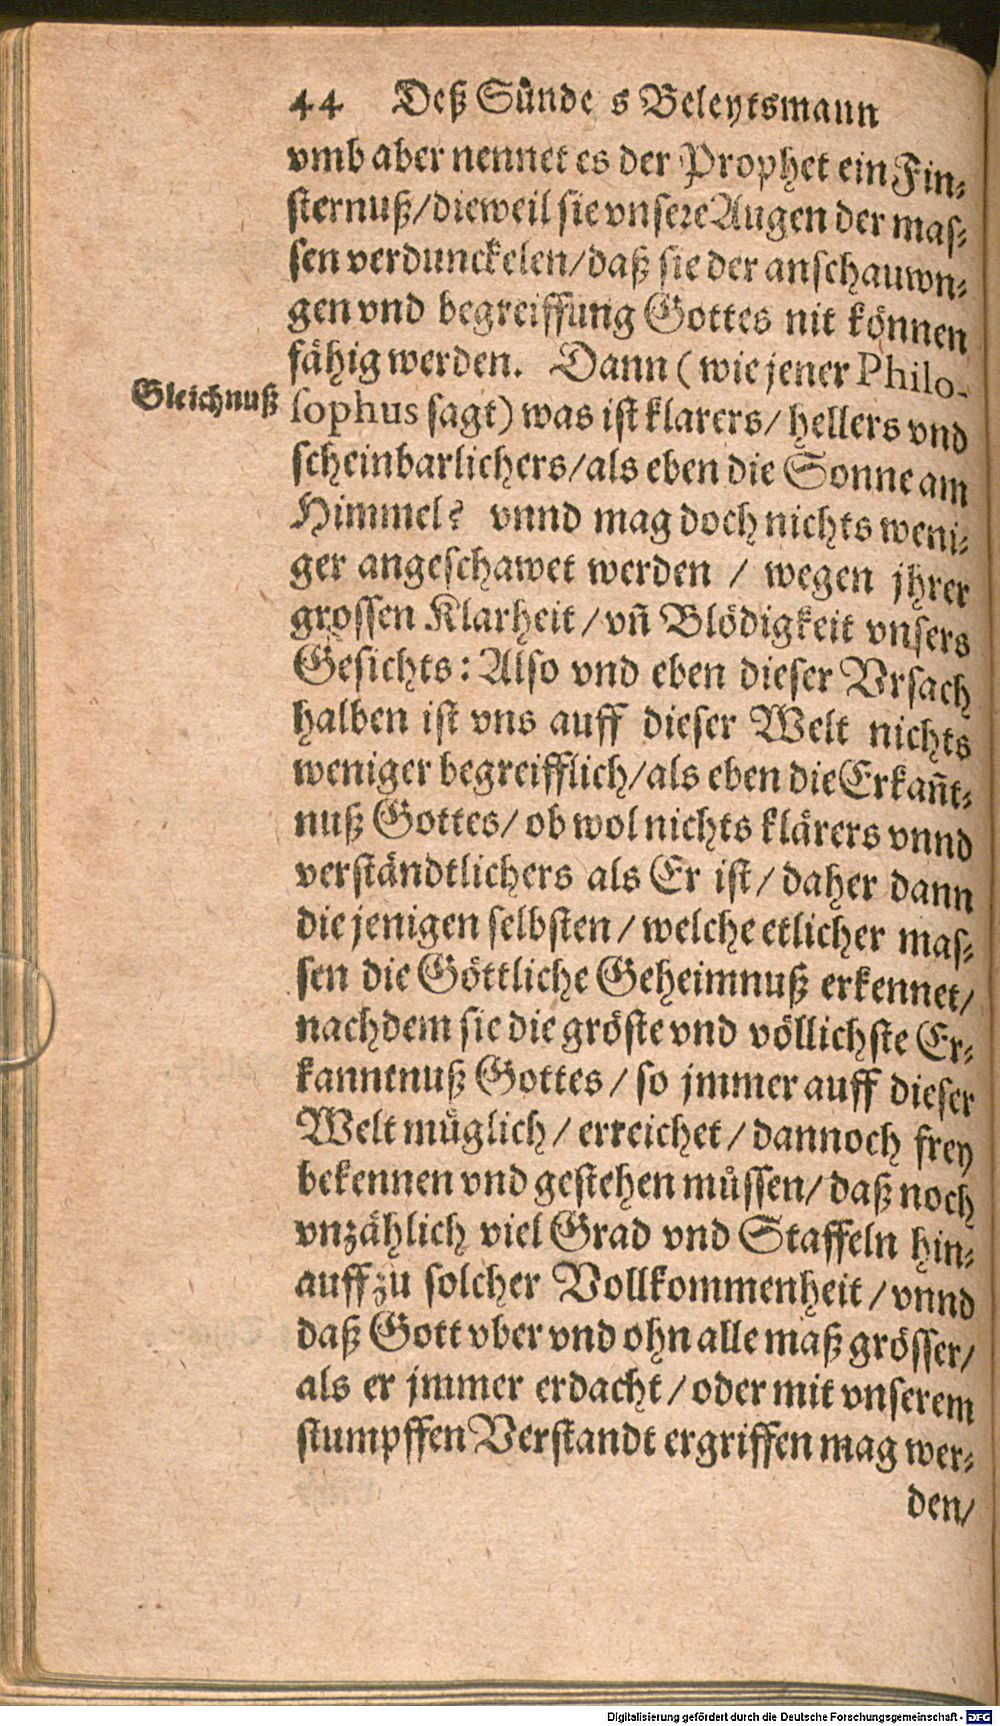 44 Deß Sünde s Beleytsmann
vmb aber nennet es der Prophet ein Fin⸗
sternuß/dieweil sie vnsere Augen der mas⸗
sen verdunckelen/daß sie der anschauwn⸗
gen vnd begreiffung Gottes nit können
fähig werden. Dann (wie jener Philo-
Gleichnuß
sophus sagt) was ist klarers/ hellers vnd
scheinbarlichers/als eben die Sonne am
Himmel? vnnd mag doch nichts weni⸗
ger angeschawet werden / wegen jhrer
grossen Klarheit/vñ Blödigkeit vnsers
Gesichts: Also vnd eben dieser Vrsach
halben ist vns auff dieser Welt nichts
weniger begreifflich/als eben die Erkañt⸗
nuß Gottes/ ob wol nichts klärers vnnd
verständtlichers als Er ist/ daher dann
die jenigen selbsten/ welche etlicher mas⸗
sen die Göttliche Geheimnuß erkennet/
nachdem sie die gröste vnd völlichste Er⸗
kanntnuß Gottes/ so jmmer auff dieser
Welt müglich/ erreichet/ dannoch frey
bekennen vnd gestehen müssen/ daß noch
vnzählich viel Grad vnd Staffeln hin⸗
auff zu solcher Vollkommenheit/ vnnd
daß Gott vber vnd ohn alle maß grösser/
als er jmmer erdacht/ oder mit vnserem
stumpffen Verstandt ergriffen mag wer⸗
den/
Digitalisierung gefördert durch die Deutsche Forschungsgemeinschaft - DFG